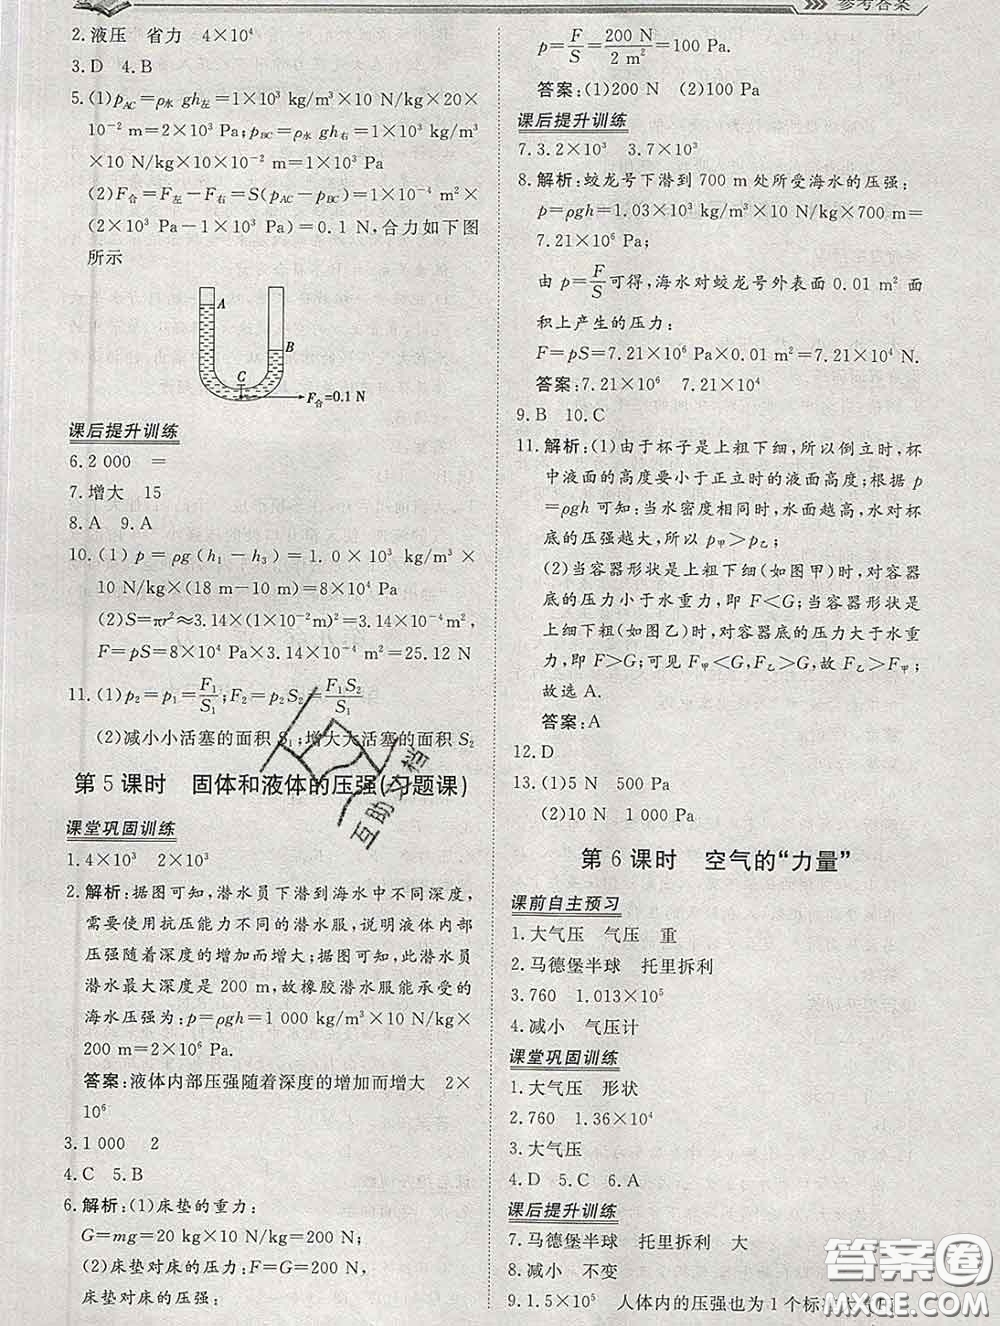 参考答案
2.液压　省力　4×10⁴
3.D　4.B
5.(1)p_AC=ρ水 gh左=1×10³ kg/m³×10 N/kg×20×
10⁻² m=2×10³ Pa;p_BC=ρ水 gh右=1×10³ kg/m³
×10 N/kg×10×10⁻² m=1×10³ Pa
(2)F合=F左-F右=S(p_AC-p_BC)=1×10⁻⁴ m²×
(2×10³ Pa-1×10³ Pa)=0.1 N,合力如下图
所示
A
B
C
F合=0.1 N
课后提升训练
6.2 000　=
7.增大　15
8.A　9.A
10.(1) p=ρg(h₁-h₃)=1.0×10³ kg/m³×
10 N/kg×(18 m-10 m)=8×10⁴ Pa
(2)S=πr²=3.14×(1×10⁻² m)²=3.14×10⁻⁴ m²,
F=pS=8×10⁴ Pa×3.14×10⁻⁴ m²=25.12 N
11.(1)p₂=p₁=F₁/S₁;F₂=p₂S₂=F₁S₂/S₁
(2)减小小活塞的面积 S₁;增大大活塞的面积 S₂
第 5 课时　固体和液体的压强(习题课)
课堂巩固训练
1.4×10³　2×10³
2.解析:据图可知,潜水员下潜到海水中不同深度,
需要使用抗压能力不同的潜水服,说明液体内部
压强随着深度的增加而增大;据图可知,此潜水员
潜水最大深度是 200 m,故橡胶潜水服能承受的
海水压强为:p=ρgh=1 000 kg/m³×10 N/kg×
200 m=2×10⁶ Pa.
答案:液体内部压强随着深度的增加而增大　2×
10⁶
3.1 000　2
4.C　5.B
6.解析:(1)床垫的重力:
G=mg=20 kg×10 N/kg=200 N;
(2)床垫对床的压力:F=G=200 N,
床垫对床的压强:
p=F/S=200 N/2 m²=100 Pa.
答案:(1)200 N　(2)100 Pa
课后提升训练
7.3.2×10³　3.7×10³
8.解析:蛟龙号下潜到 700 m 处所受海水的压强:
p=ρgh=1.03×10³ kg/m³×10 N/kg×700 m=
7.21×10⁶ Pa;
由 p=F/S可得,海水对蛟龙号外表面 0.01 m² 面
积上产生的压力:
F=pS=7.21×10⁶ Pa×0.01 m²=7.21×10⁴ N.
答案:7.21×10⁶　7.21×10⁴
9.B　10.C
11.解析:(1)由于杯子是上粗下细,所以倒立时,杯
中液面的高度要小于正立时的液面高度;根据 p
=ρgh 可知:当水密度相同时,水面越高,水对杯
底的压强越大,所以 p甲>p乙;
(2)当容器形状是上粗下细(如图甲)时,对容器
底的压力小于水重力,即 F<G;当容器形状是
上细下粗(如图乙)时,对容器底的压力大于水重
力,即 F>G;可见 F甲<G,F乙>G,故 F乙>F甲;
故选 A.
答案:A
12.D
13.(1)5 N　500 Pa
(2)10 N　1 000 Pa
第 6 课时　空气的“力量”
课前自主预习
1.大气压　气压　重
2.马德堡半球　托里拆利
3.760　1.013×10⁵
4.减小　气压计
课堂巩固训练
1.大气压　形状
2.760　1.36×10⁴
3.大气压
4.D　5.C　6.A
课后提升训练
7.马德堡半球　托里拆利　大
8.减小　不变
9.1.5×10⁵　人体内的压强也为 1 个标准大气压
互助文档
答案圈